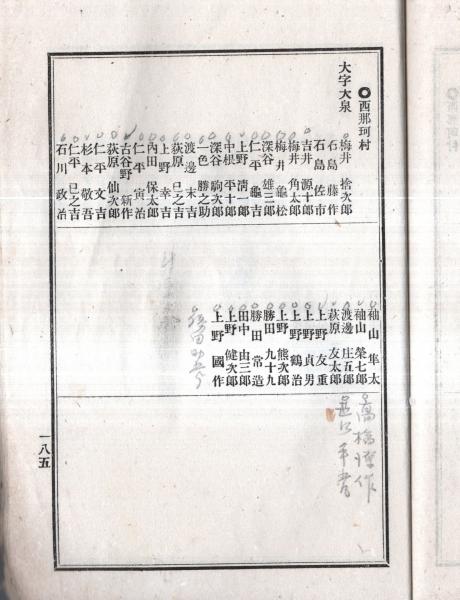 ◎西那珂村
大字大泉
梅井捨次郎
石島藤作
石島佐市
吉井源十郎
梅井角太郎
梅井龜松
深谷雄三郎
仁平龜吉
上野淸一郎
中根平十郎
深谷駒次郎
一色勝之助
渡邊末吉
萩原巳之吉
上野幸吉
內田保太郎
仁平寅治
古谷野新作
萩原仙次郎
仁平文吉
杉本敬吾
仁平巳之吉
石川政治
袖山隼太
袖山榮七郎
渡邊庄五郎
萩原友太郎
上野友重
上野貞男
上野鶴治
上野熊次郎
勝田九十九
勝田常造
田中由三郎
上野健次郎
上野國作
一八五